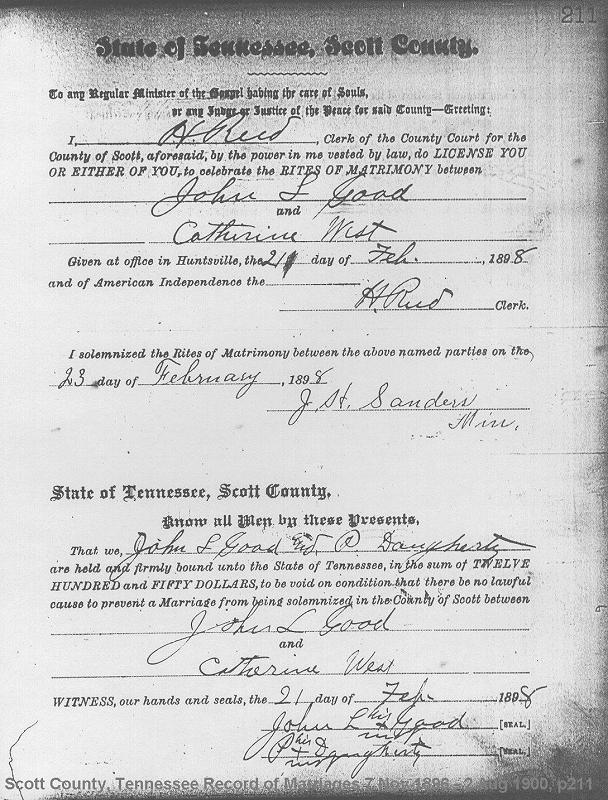 211
State of Tennessee, Scott County.
To any Regular Minister of the Gospel having the care of Souls,
or any Judge or Justice of the Peace for said County—Greeting:
I, H. Reed, Clerk of the County Court for the
County of Scott, aforesaid, by the power in me vested by law, do LICENSE YOU
OR EITHER OF YOU, to celebrate the RITES OF MATRIMONY between
John L Good
and
Catherine West
Given at office in Huntsville, the 21 day of Feb. , 1898
and of American Independence the
H. Reed Clerk.
I solemnized the Rites of Matrimony between the above named parties on the
23 day of February , 1898
J. H. Sanders
Min.
State of Tennessee, Scott County.
Know all Men by these Presents,
That we, John L Good and P. Daugherty
are held and firmly bound unto the State of Tennessee, in the sum of TWELVE
HUNDRED and FIFTY DOLLARS, to be void on condition that there be no lawful
cause to prevent a Marriage from being solemnized in the County of Scott between
John L Good
and
Catherine West
WITNESS, our hands and seals, the 21 day of Feb. 1898
John L his Good [SEAL.]
P his Daugherty [SEAL.]
Scott County, Tennessee Record of Marriages 7 Nov 1896 - 2 Aug 1900, p211